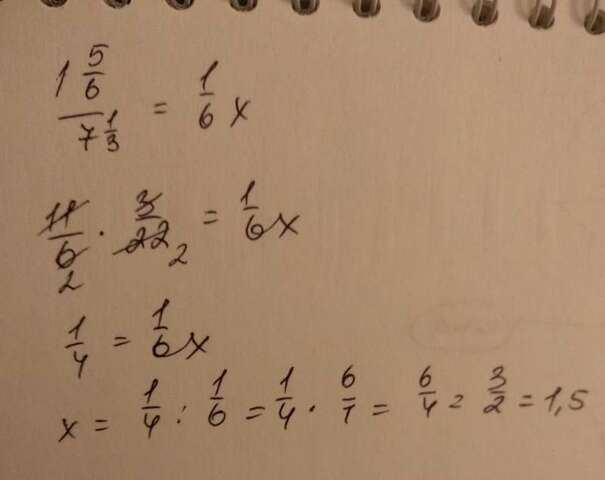 1 5/6 / 7 1/3 = 1/6 x
11/6 2 · 3/22 2 = 1/6 x
1/4 = 1/6 x
x = 1/4 : 1/6 = 1/4 · 6/1 = 6/4 = 3/2 = 1,5